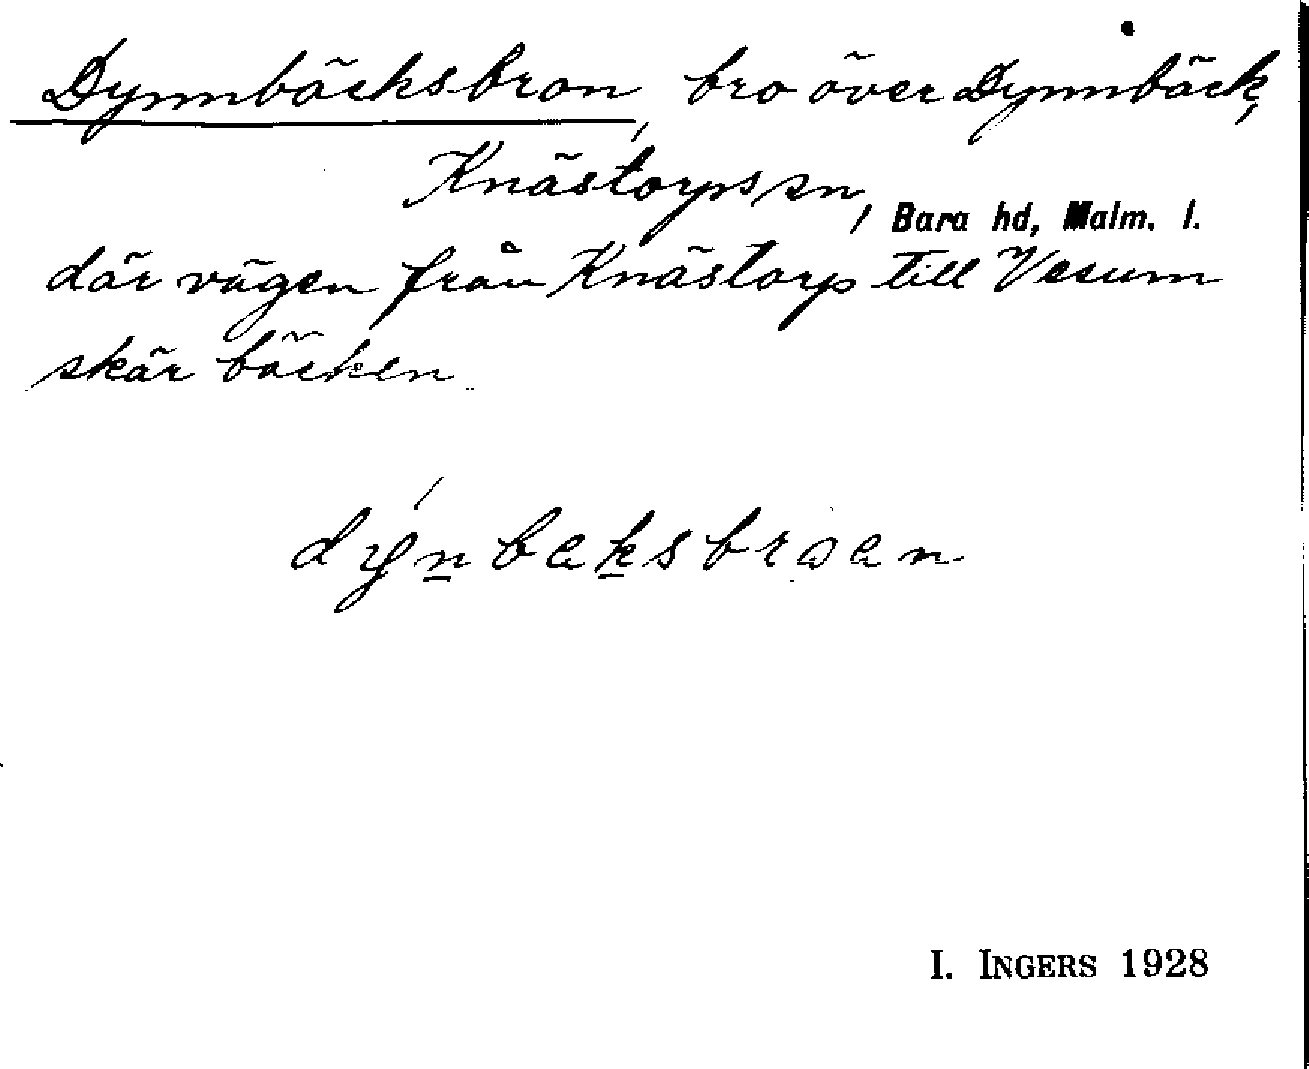 Dynnbäcksbron, bro över Dynnbäck,
Knästorps sn, Bara hd, Malm. l.
där vägen från Knästorp till Vesum
skär bäcken.
dýnbaksbroen
I. INGERS 1928